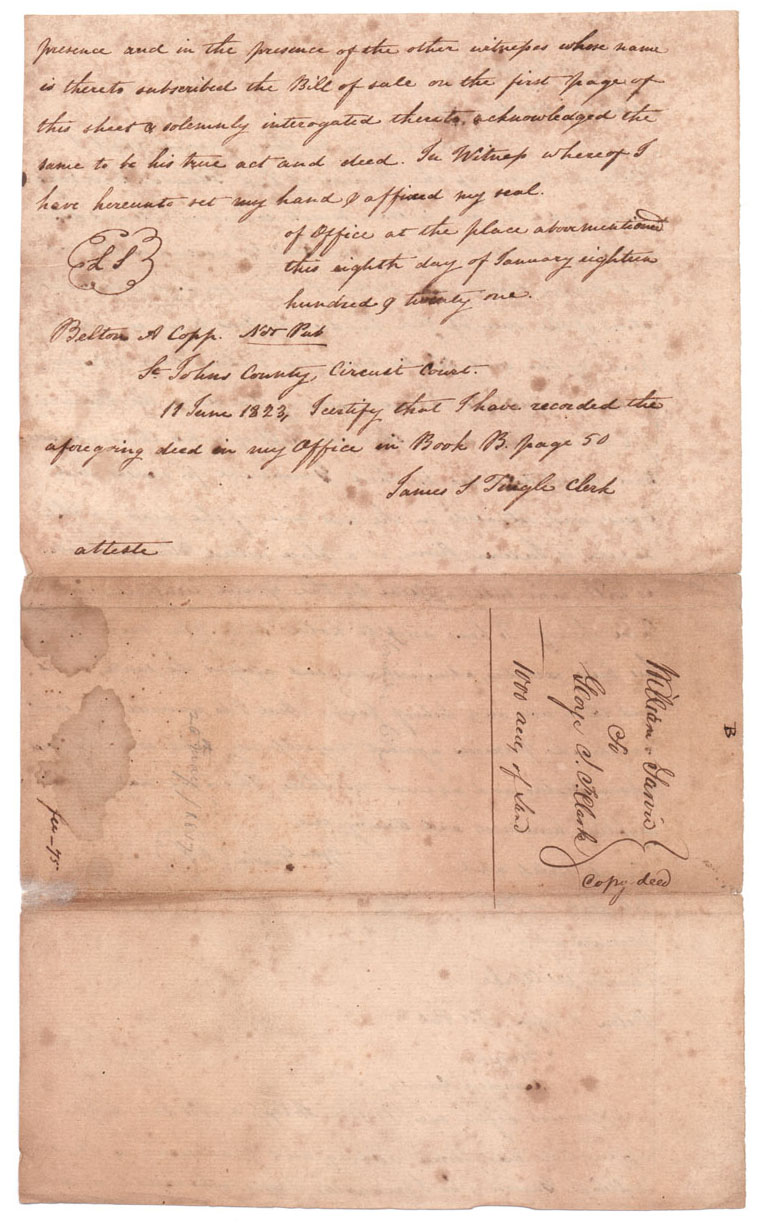 presence and in the presence of the other witness whose name
is thereto subscribed the Bill of sale on the first page of
this sheet & solemnly interogated thereto, acknowledged the
same to be his true act and deed. In Witness whereof I
have hereunto set my hand & affixed my seal.
of Office at the place abovementioned
L S
this eighth day of January eighteen
hundred & twenty one.
Belton A Copp. Not Pub
St Johns County, Circuit Court.
11 June 1823, I certify that I have recorded the
aforegoing deed in my Office in Book B. page 50
James S Tingle Clerk
atteste
B
William Jarvis
to
George J. F. Clark
Copy deed
1000 acres of Land
fee - 75